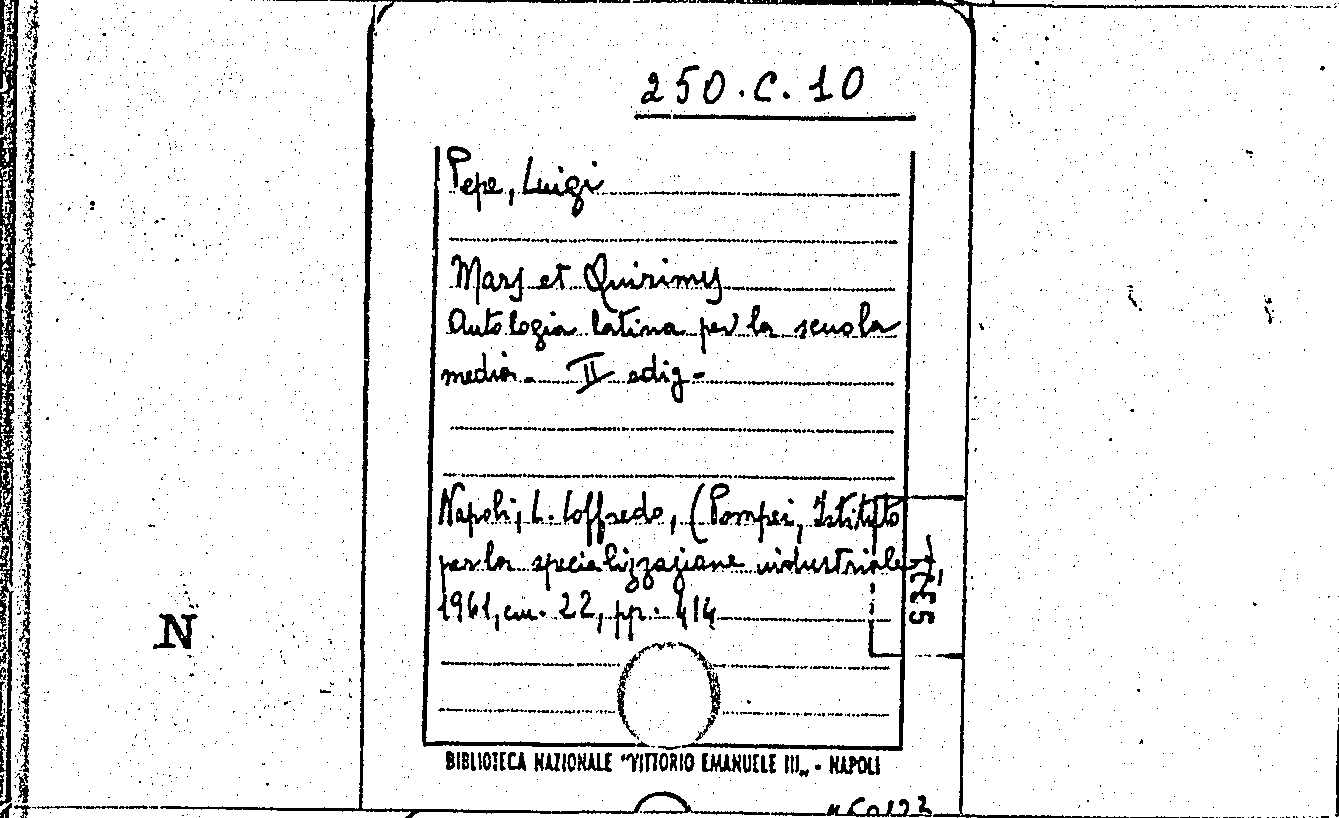 250.C.10
Pepe, Luigi
Mars et Quirinus
Antologia latina per la scuola
media. II ediz.
Napoli, L. Loffredo, (Pompei, Istituto
per la specializzazione industriale),
1961, cm. 22, pp. 414
N
BIBLIOTECA NAZIONALE "VITTORIO EMANUELE III„ - NAPOLI